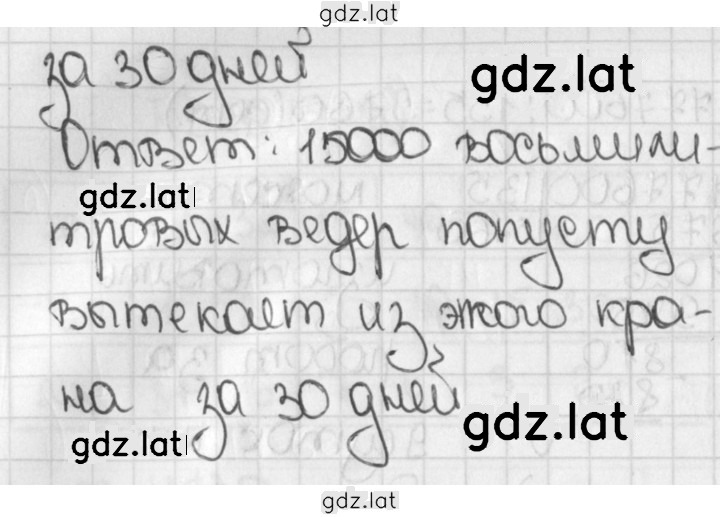 gdz.lat
за 30 дней
gdz.lat
Ответ: 15000 восьмили-
gdz.lat
тровых ведер попусту
вытекает из этого кра-
на за 30 дней
gdz.lat
gdz.lat
gdz.lat